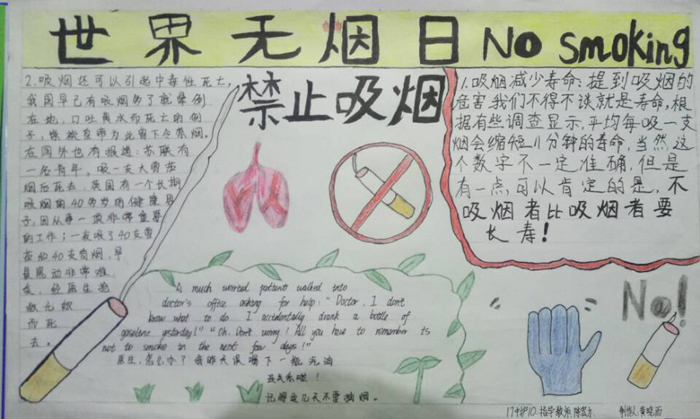 世界无烟日 No smoking
禁止吸烟
2.吸烟还可以引起中毒性死亡,
我国早已有吸烟多了就晕倒
在地,口吐黄水而死亡的例
子。
在国外也有报道:苏联有
一名青年,吸一支大雪茄
烟后死去。英国有一个长期
吸烟的40多岁的健康男
子,因从事一项非常重要
的工作,一夜吸了40支香
烟,早
晨感动非常难
受,经医生抢
救无效
而死
去。
1.吸烟减少寿命:提到吸烟的
危害,我们不得不谈就是寿命,根
据有些调查显示,平均每吸一支
烟会缩短11分钟的寿命,当然这
个数字不一定准确,但是
有一点可以肯定的是,不
吸烟者比吸烟者要
长寿!
A much worried patient walked into
doctor's office asking for help: "Doctor, I don't
know what to do. I accidentally drank a bottle of
gasoline yesterday!" "Oh, Don't worry! All you have to remember is
not to smoke in the next few days!"
医生,怎么办?我昨天误喝下一瓶汽油
记得这几天不要抽烟。
No!